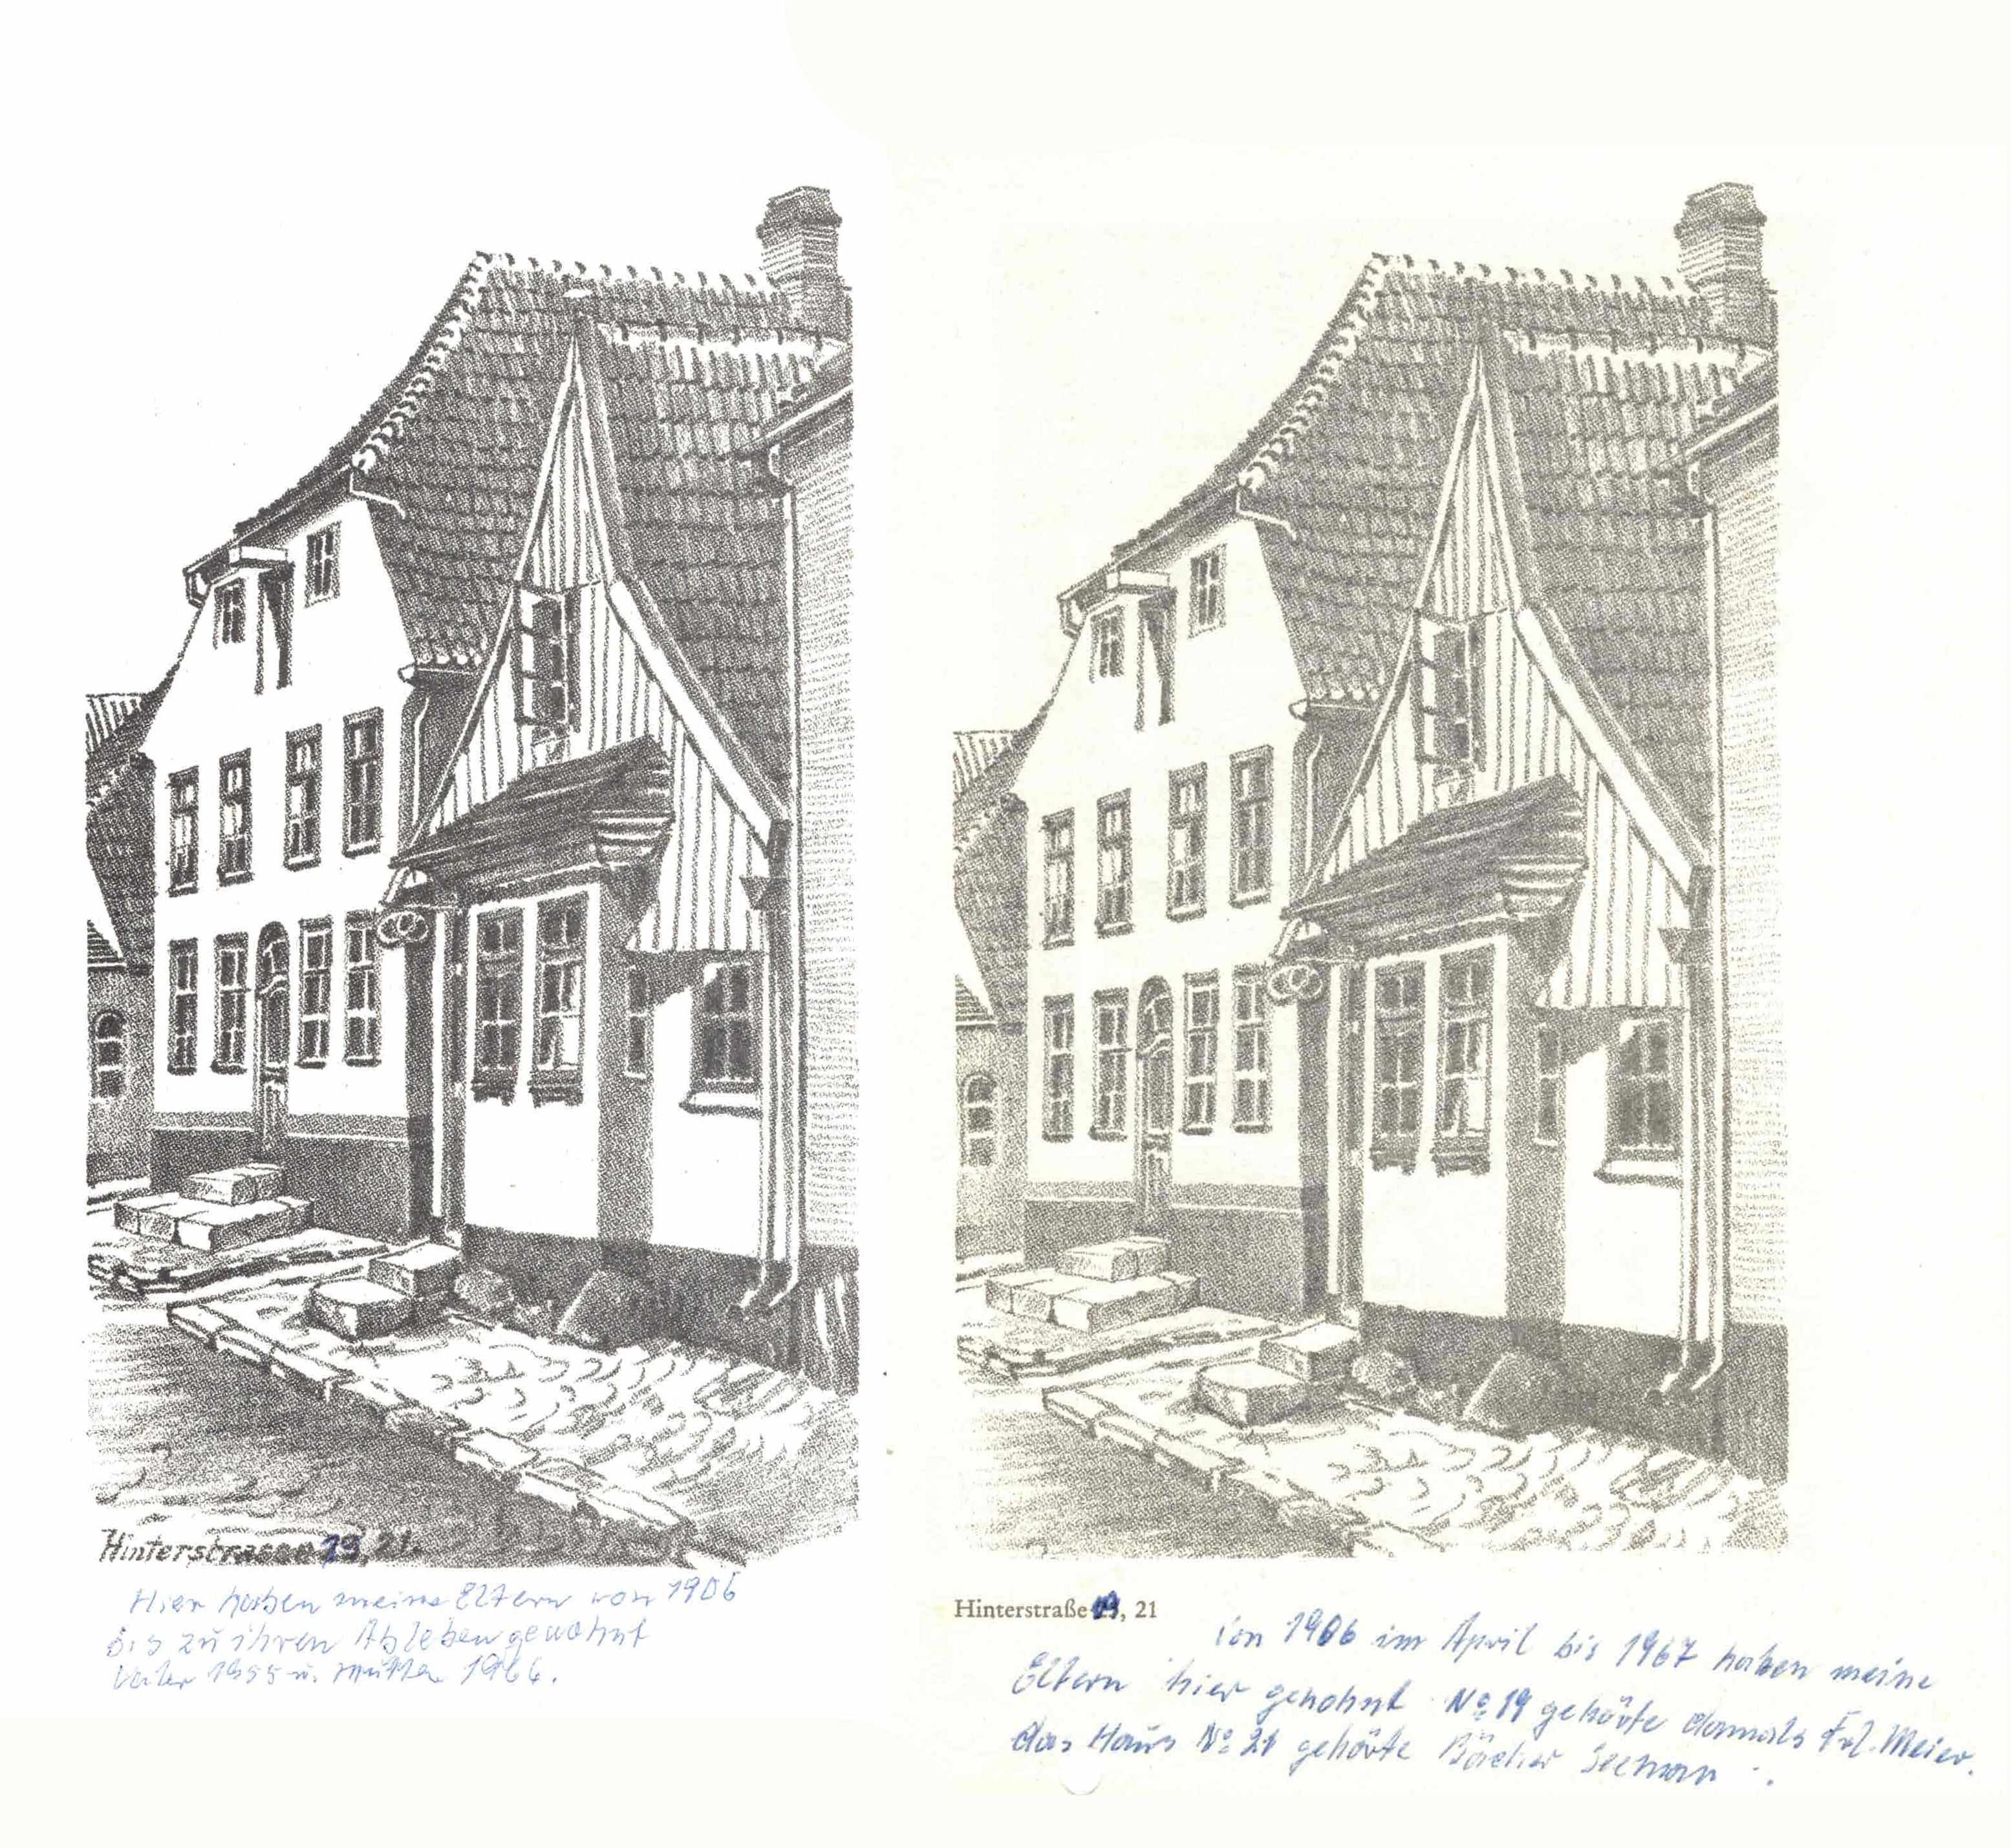 Hinterstrasse 19, 21.
Hier haben meine Eltern von 1906
bis zu ihren Ableben gewohnt
Vater 1955 u. Mutter 1966.
Hinterstraße 19, 21
Von 1906 im April bis 1967 haben meine
Eltern hier gewohnt No 19 gehörte damals Frl. Meier.
das Haus No 21 gehörte Bäcker Seeman